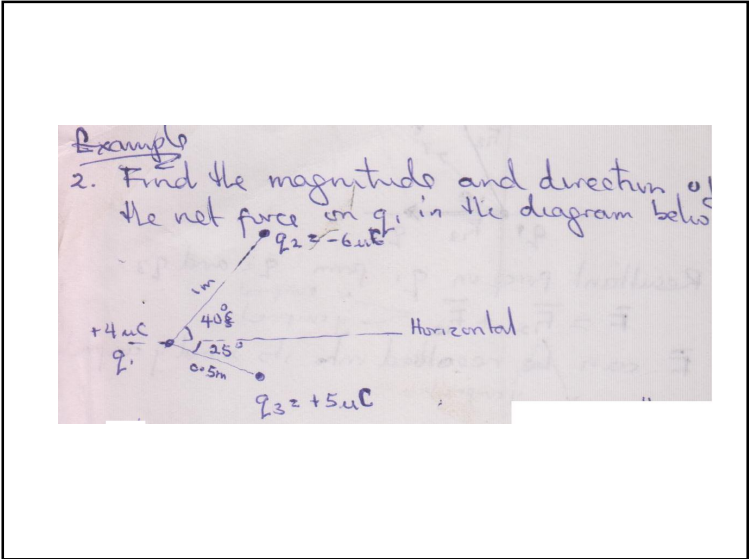 Example
2. Find the magnitude and direction of
the net force on q₁ in the diagram below
q₂ = -6μC
1m
40°
+4μC
Horizontal
25°
q₁
0.5m
q₃ = +5μC